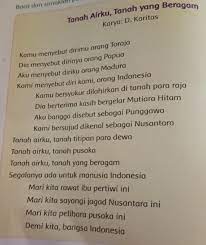 Baca dan simaklah
Tanah Airku, Tanah yang Beragam
Karya: D. Karitas
Kamu menyebut dirimu orang Toraja
Dia menyebut dirinya orang Papua
Aku menyebut diriku orang Madura
Kami menyebut diri kami, orang Indonesia
Kamu bersyukur dilahirkan di tanah para raja
Dia berterima kasih bergelar Mutiara Hitam
Aku bangga disebut sebagai Punggawa
Kami bersujud dikenal sebagai Nusantara
Tanah airku, tanah titipan para dewa
Tanah airku, tanah pusaka
Tanah airku, tanah yang beragam
Segalanya ada untuk manusia Indonesia
Mari kita rawat ibu pertiwi ini
Mari kita sayangi jagad Nusantara ini
Mari kita pelihara pusaka ini
Demi kita, bangsa Indonesia